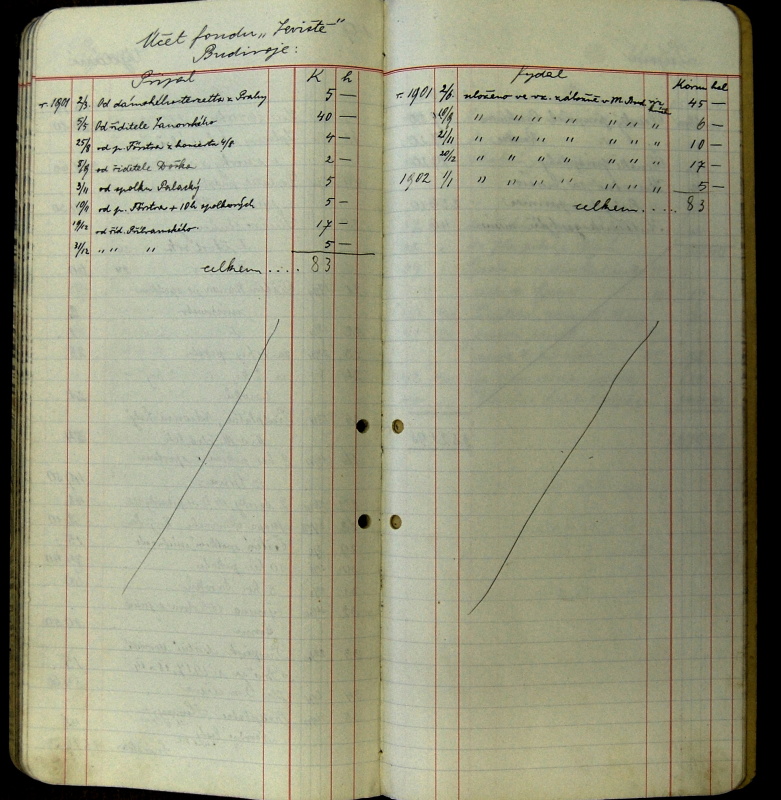 Účet fondu „Jeviště“
Budivoje:
Přijal K h
r. 1901 2/3. Od dámského terzetta z Prahy 5 —
5/5 Od ředitele Janovského 40 —
25/8 od p. Förstra z koncertu 4/8 4 —
8/9 od ředitele 2 —
3/11 od spolku Palacký 5
19/11 od p. Förstra + 10 h spolkových 5 —
19/12 od řed. 17 —
31/12 " " " 5 —
celkem .... 83
Vydal Korun hal
r. 1901 2/6. uloženo ve vz. záložně v M. Bud 45 —
10/9 " " " " " " " 6 —
21/11 " " " " " " " 10 —
20/12 " " " " " " " 17 —
1902 1/1 " " " " " " " 5 —
celkem .... 83